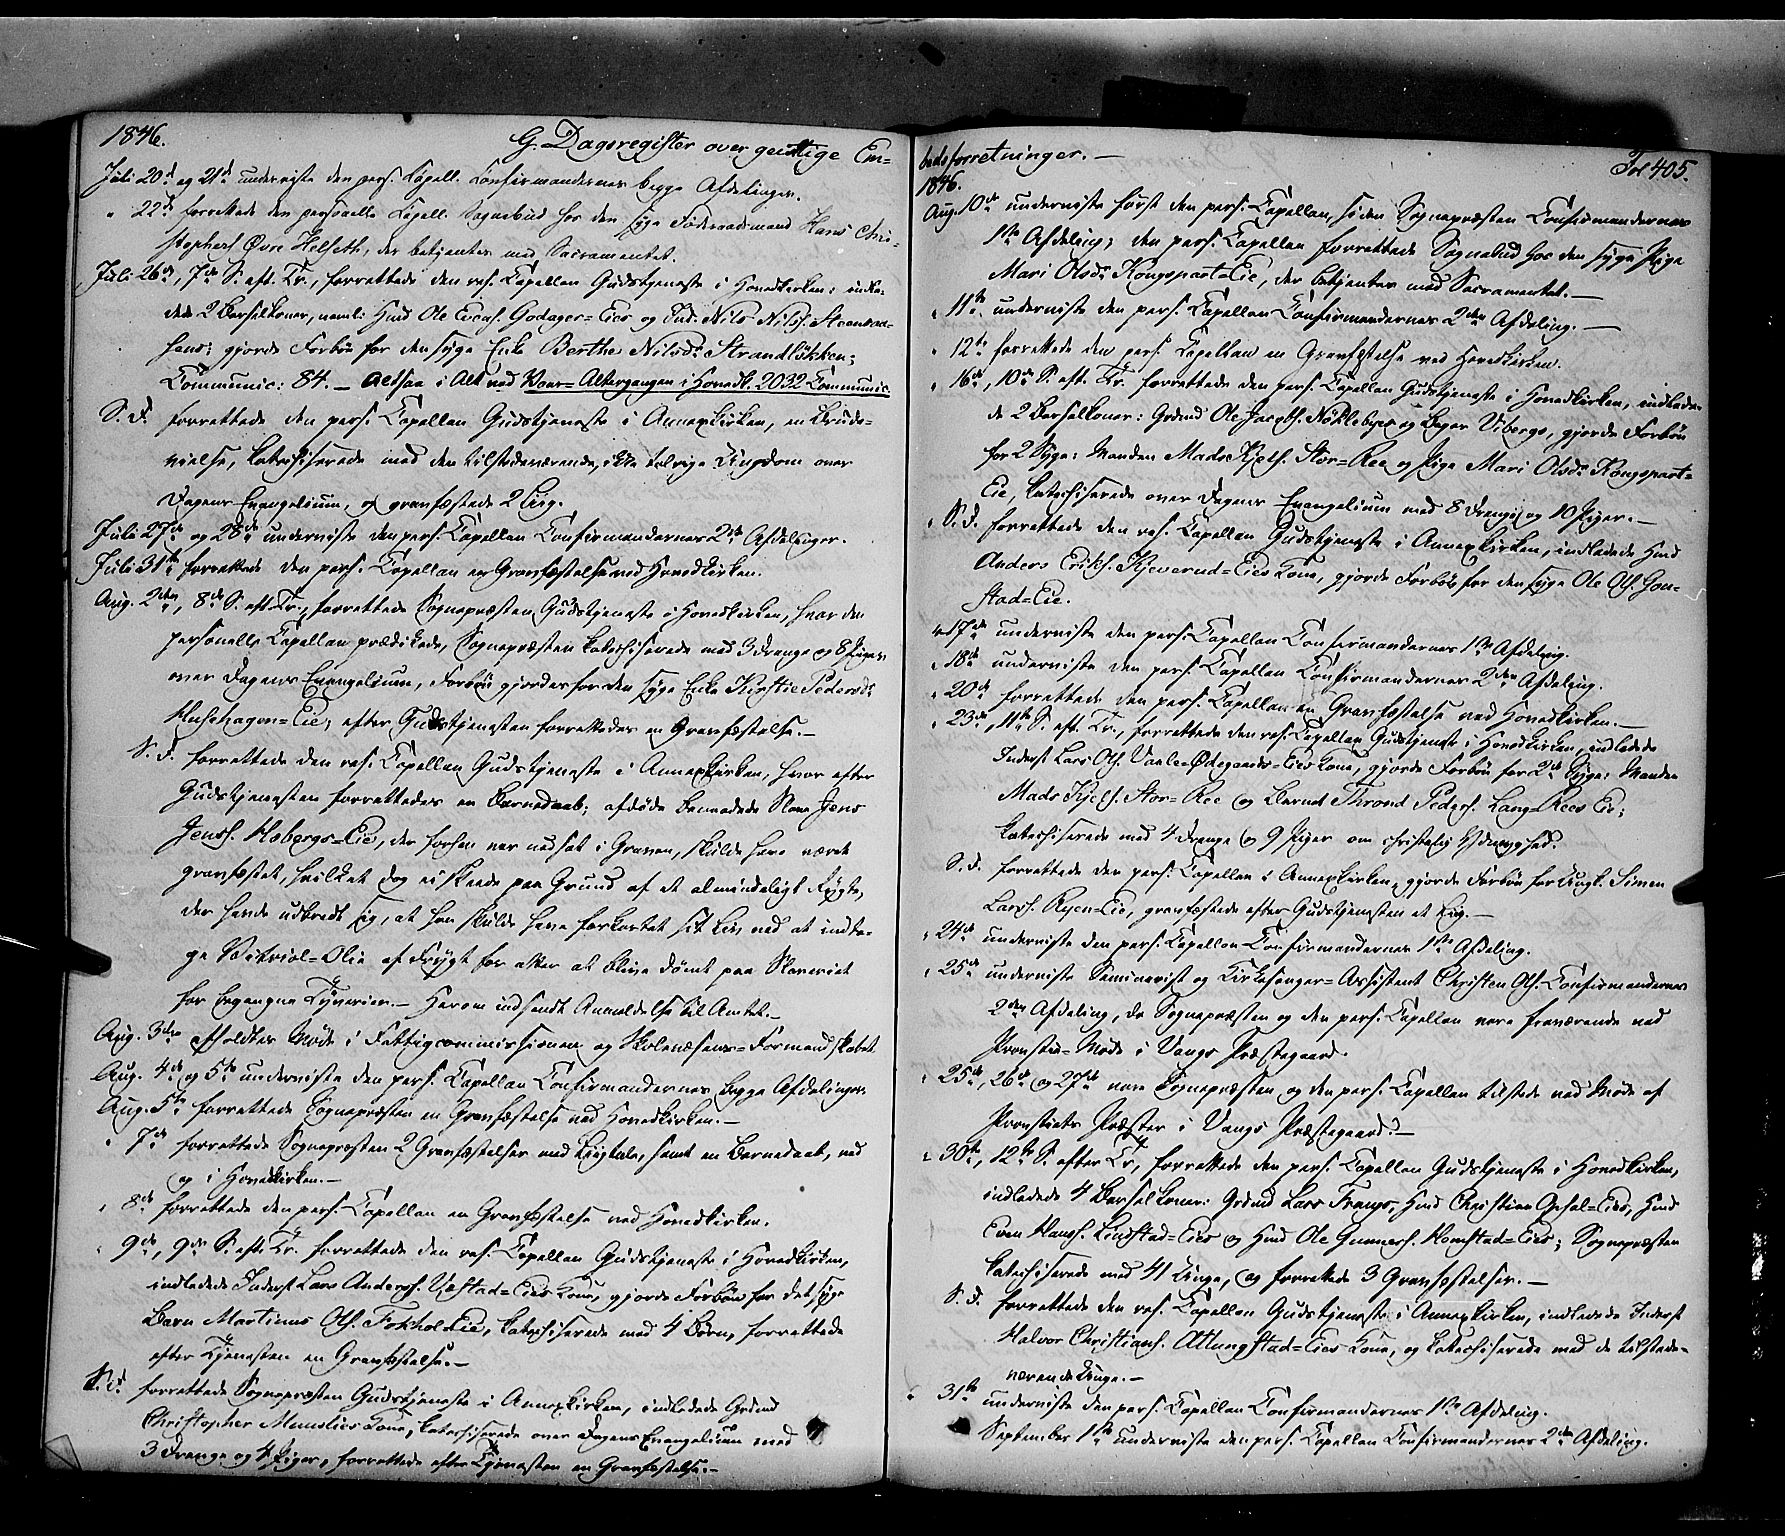 1846.
G. Dagsregister over geistlige Em-
Juli 20de og 21de underviste den pers. Capell. Confirmandernes begge Afdelinger.
" 22de forrettede den personelle Capell. Sognebud hos den syge Føderaadsmand Hans Chri-
stophers. Øvre Helseth, der betjentes med Sacramentet.
Juli 26de, 7de S. eft. Tr., forrettede den res. Capellan Gudstjeneste i Hovedkirken; indle-
dede 2 Barselkoner, neml: Hmd Ole Evens. Godager=Eies og Ind. Nils Nilss.
hens; gjorde Forbøn for den syge Enke Berthe Nilsdr Strandløkken;
Communic: 84. – Altsaa i Alt ved Vaar=Altergangen i Hovedk. 2032 Communic.
S. D. forrettede den pers. Capellan Gudstjeneste i Annexkirken, en Brude-
vielse, katechiserede med den tilstedeværende, ikke talrige Ungdom over
Dagens Evangelium, og gravfæstede 2 Liig.
Juli 27de og 28de underviste den pers. Capellan Confirmandernes 2de Afdelinger.
Juli 31te forrettede den pers. Capellan en Gravfæstelse ved Hovedkirken.
Aug. 2den, 8de S. eft. Tr., forrettede Sognepræsten Gudstjeneste i Hovedkirken, hvor den
personelle Capellan prædikede, Sognepræsten katechiserede med 3 Drenge og 8 Piger
over Dagens Evangelium, Forbøn gjordes for den syge Enke Kirstie Pedersdr
Husehagen=Eie; efter Gudstjenesten forrettedes en Gravfæstelse. –
S. D. forrettede den res. Capellan Gudstjeneste i Annexkirken, hvor efter
Gudstjenesten forrettedes en Barnedaab; afdøde benaadede Slave Jens
Jenss. Hobergs=Eie, der forhen var nedsat i Graven, skulde have været
gravfæstet, hvilket dog ei skeede paa Grund af et almindeligt Rygte,
der havde udbredt sig, at han skulde have forkortet sit Liv ved at indta-
ge Vitriol=Olie af Frygt for atter at blive dømt paa Slaveriet
for begangne Tyverier. – Herom indsendt Anmeldelse til Amtet. –
Aug. 3die afholdtes Møde i Fattigcommissionen og Skolevæsens=Formandskabet.
Aug. 4de og 5te underviste den pers. Capellan Confirmandernes begge Afdelinger.
Aug. 5te forrettede Sognepræsten en Gravfæstelse ved Hovedkirken. –
" 7de forrettede Sognepræsten 2 Gravfæstelser med Liigtale, samt en Barnedaab, ved
og i Hovedkirken. –
" 8de forrettede den pers. Capellan en Gravfæstelse ved Hovedkirken.
" 9de, 9de S. eft. Tr. forrettede den res. Capellan Gudstjeneste i Hovedkirken,
indledede Inderst Lars Anderss. =Eies Kone, gjorde Forbøn for det syge
Barn Martinus Ols. Fokhol Eie, katechiserede med 4 Børn, forrettede
efter Tjenesten en Gravfæstelse. –
S. D. forrettede Sognepræsten Gudstjeneste i Annexkirken, indledede Grdmd
Christopher Kone, katechiserede over Dagens Evangelium med
3 Drenge og 4 Piger, forrettede efter Tjenesten en Gravfæstelse. –
bedsforretninger. –
Fol 405.
1846.
Aug. 10de underviste først den pers. Capellan, siden Sognepræsten Confirmandernes
1ste Afdeling; den pers. Capellan forrettede Sognebud hos den syge Pige
Mari Olsdr Kongsparts=Eie, der betjentes med Sacramentet. –
" 11te underviste den pers. Capellan Confirmandernes 2den Afdeling. –
" 12te forrettede den pers. Capellan en Gravfæstelse ved Hovedkirken.
" 16de, 10de S. eft. Tr. forrettede den pers. Capellan Gudstjeneste i Hovedkirken, indlede-
de 2 Barselkoner: Grdmd Ole Jacobs. Nøklebyes og Bager Vibergs, gjorde Forbøn
for 2 Syge: Manden Mads Kjels. Stor=Ree og Pige Mari Olsdr Kongsparts=
Eie, katechiserede over Dagens Evangelium med 8 Drenge og 10 Piger. –
" S. D. forrettede den res. Capellan Gudstjeneste i Annexkirken, indledede Hmd
Anders Eriks. Kjeverud=Eies Kone, gjorde Forbøn for den syge Ole Ols. Gon-
stad=Eie.
" 17de underviste den pers. Capellan Confirmandernes 1ste Afdeling.
" 18de underviste den pers. Capellan Confirmandernes 2den Afdeling.
" 20de forrettede den pers. Capellan en Gravfæstelse ved Hovedkirken. –
" 23de, 11te S. eft. Tr., forrettede den res. Capellan Gudstjeneste i Hovedkirken, indledede
Inderst Lars Ols. Vaale=Ødegaards=Eies Kone, gjorde Forbøn for 2de Syge: Manden
Mads Kjels. Stor=Ree og Barnet Thrond Peders. Lang=Rees Eie;
katechiserede med 4 Drenge og 9 Piger om christelig Ydmyghed.
S. D. forrettede den pers. Capellan i Annexkirken, gjorde Forbøn for Ungk. Simen
Larss. Ryen=Eie, gravfæstede efter Gudstjenesten et Liig. –
" 24de underviste den pers. Capellan Confirmandernes 1ste Afdeling.
" 25de underviste Seminarist og Kirkesanger=Assistent Christen Ols. Confirmandernes
2den Afdeling, da Sognepræsten og den pers. Capellan vare fraværende ved
Provstie=Møde i Vangs Præstegaard.
" 25de, 26de og 27de vare Sognepræsten og den pers. Capellan tilstede ved Møde af
Provstiets Præster i Vangs Præstegaard. –
" 30te, 12te S. efter Tr, forrettede den pers. Capellan Gudstjeneste i Hovedkirken,
indledede 4 Barselkoner: Grdmd Lars Frangs, Hmd Christian Opsal=Eies, Hmd
Even Hanss. Lindstad=Eies og Hmd Ole Gunners. Hemstad=Eies; Sognepræsten
katechiserede med 41 Unge, og forrettede 3 Gravfæstelser. –
S. D. forrettede den res. Capellan Gudstjeneste i Annexkirken, indledede Inderst
Halvor Christians. Atlungstad=Eies Kone, og katechiserede med de tilstede-
værende Unge. –
" 31te underviste den pers. Capellan Confirmandernes 1ste Afdeling.
September 1ste underviste den pers. Capellan Confirmandernes 2den Afdeling.